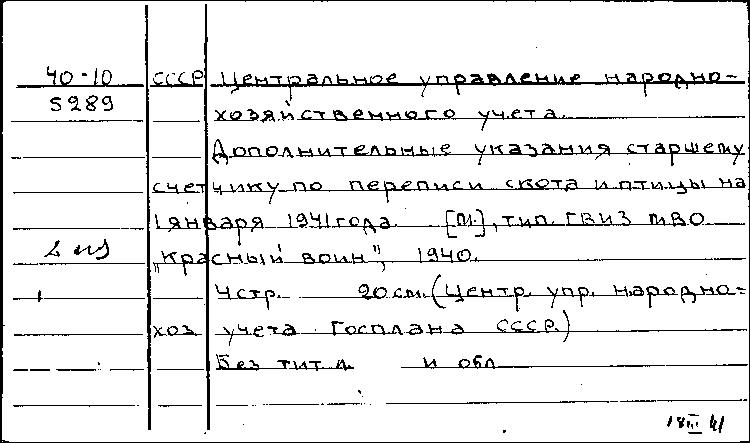 40-10 СССР Центральное управление народно-
5289 хозяйственного учета.
Дополнительные указания старшему
счетчику по переписи скота и птицы на
1 января 1941 года. [М.], тип. ГВИЗ МВО
„Красный воин", 1940.
4 стр. 20 см. (Центр. упр. народно=
хоз. учета Госплана СССР.)
Без тит. л. и обл.
18 III 41